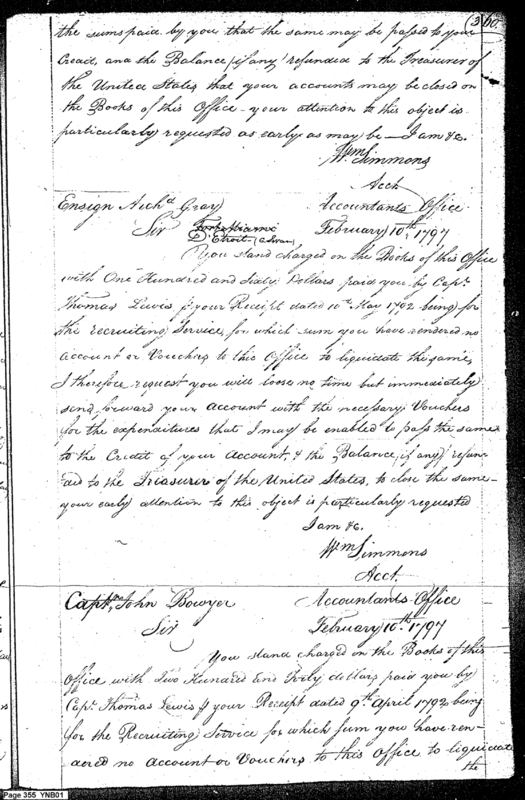 360
the sums paid by you that the same may be passed to your
Credit, and the Balance (if any) refunded to the Treasurer of
the United States that your accounts may be closed on
the Books of this Office - your attention to this object is
particularly requested as early as may be - I am &c.
Wm Simmons
Acct
Ensign Archd Gray
Accountants Office
Sir
February 10th, 1797
Detroit
You stand charged on the Books of this Office
with One Hundred and Sixty Dollars paid you by Capt.
Thomas Lewis p your Receipt dated 10th May 1792 being for
the recruiting Service, for which sum you have rendered no
account or Vouchers to this Office to liquidate the same,
I therefore request you will loose no time but immediately
send forward your Account with the necessary Vouchers
for the expenditures that I may be enabled to pass the same
to the Credit of your Account, & the Balance, (if any) refun-
ded to the Treasurer of the United States, to close the same -
your early attention to this object is particularly requested
I am &c.
Wm Simmons
Acct.
Capt. John Bowyer
Accountants Office
Sir
February 10th, 1797
You stand charged on the Books of this
Office with Two Hundred and forty dollars paid you by
Capt. Thomas Lewis p your Receipt dated 9th April 1792 being
for the Recruiting Service for which sum you have ren-
dered no account or Vouchers to this Office to liquidate
the
Page 355 YNB01